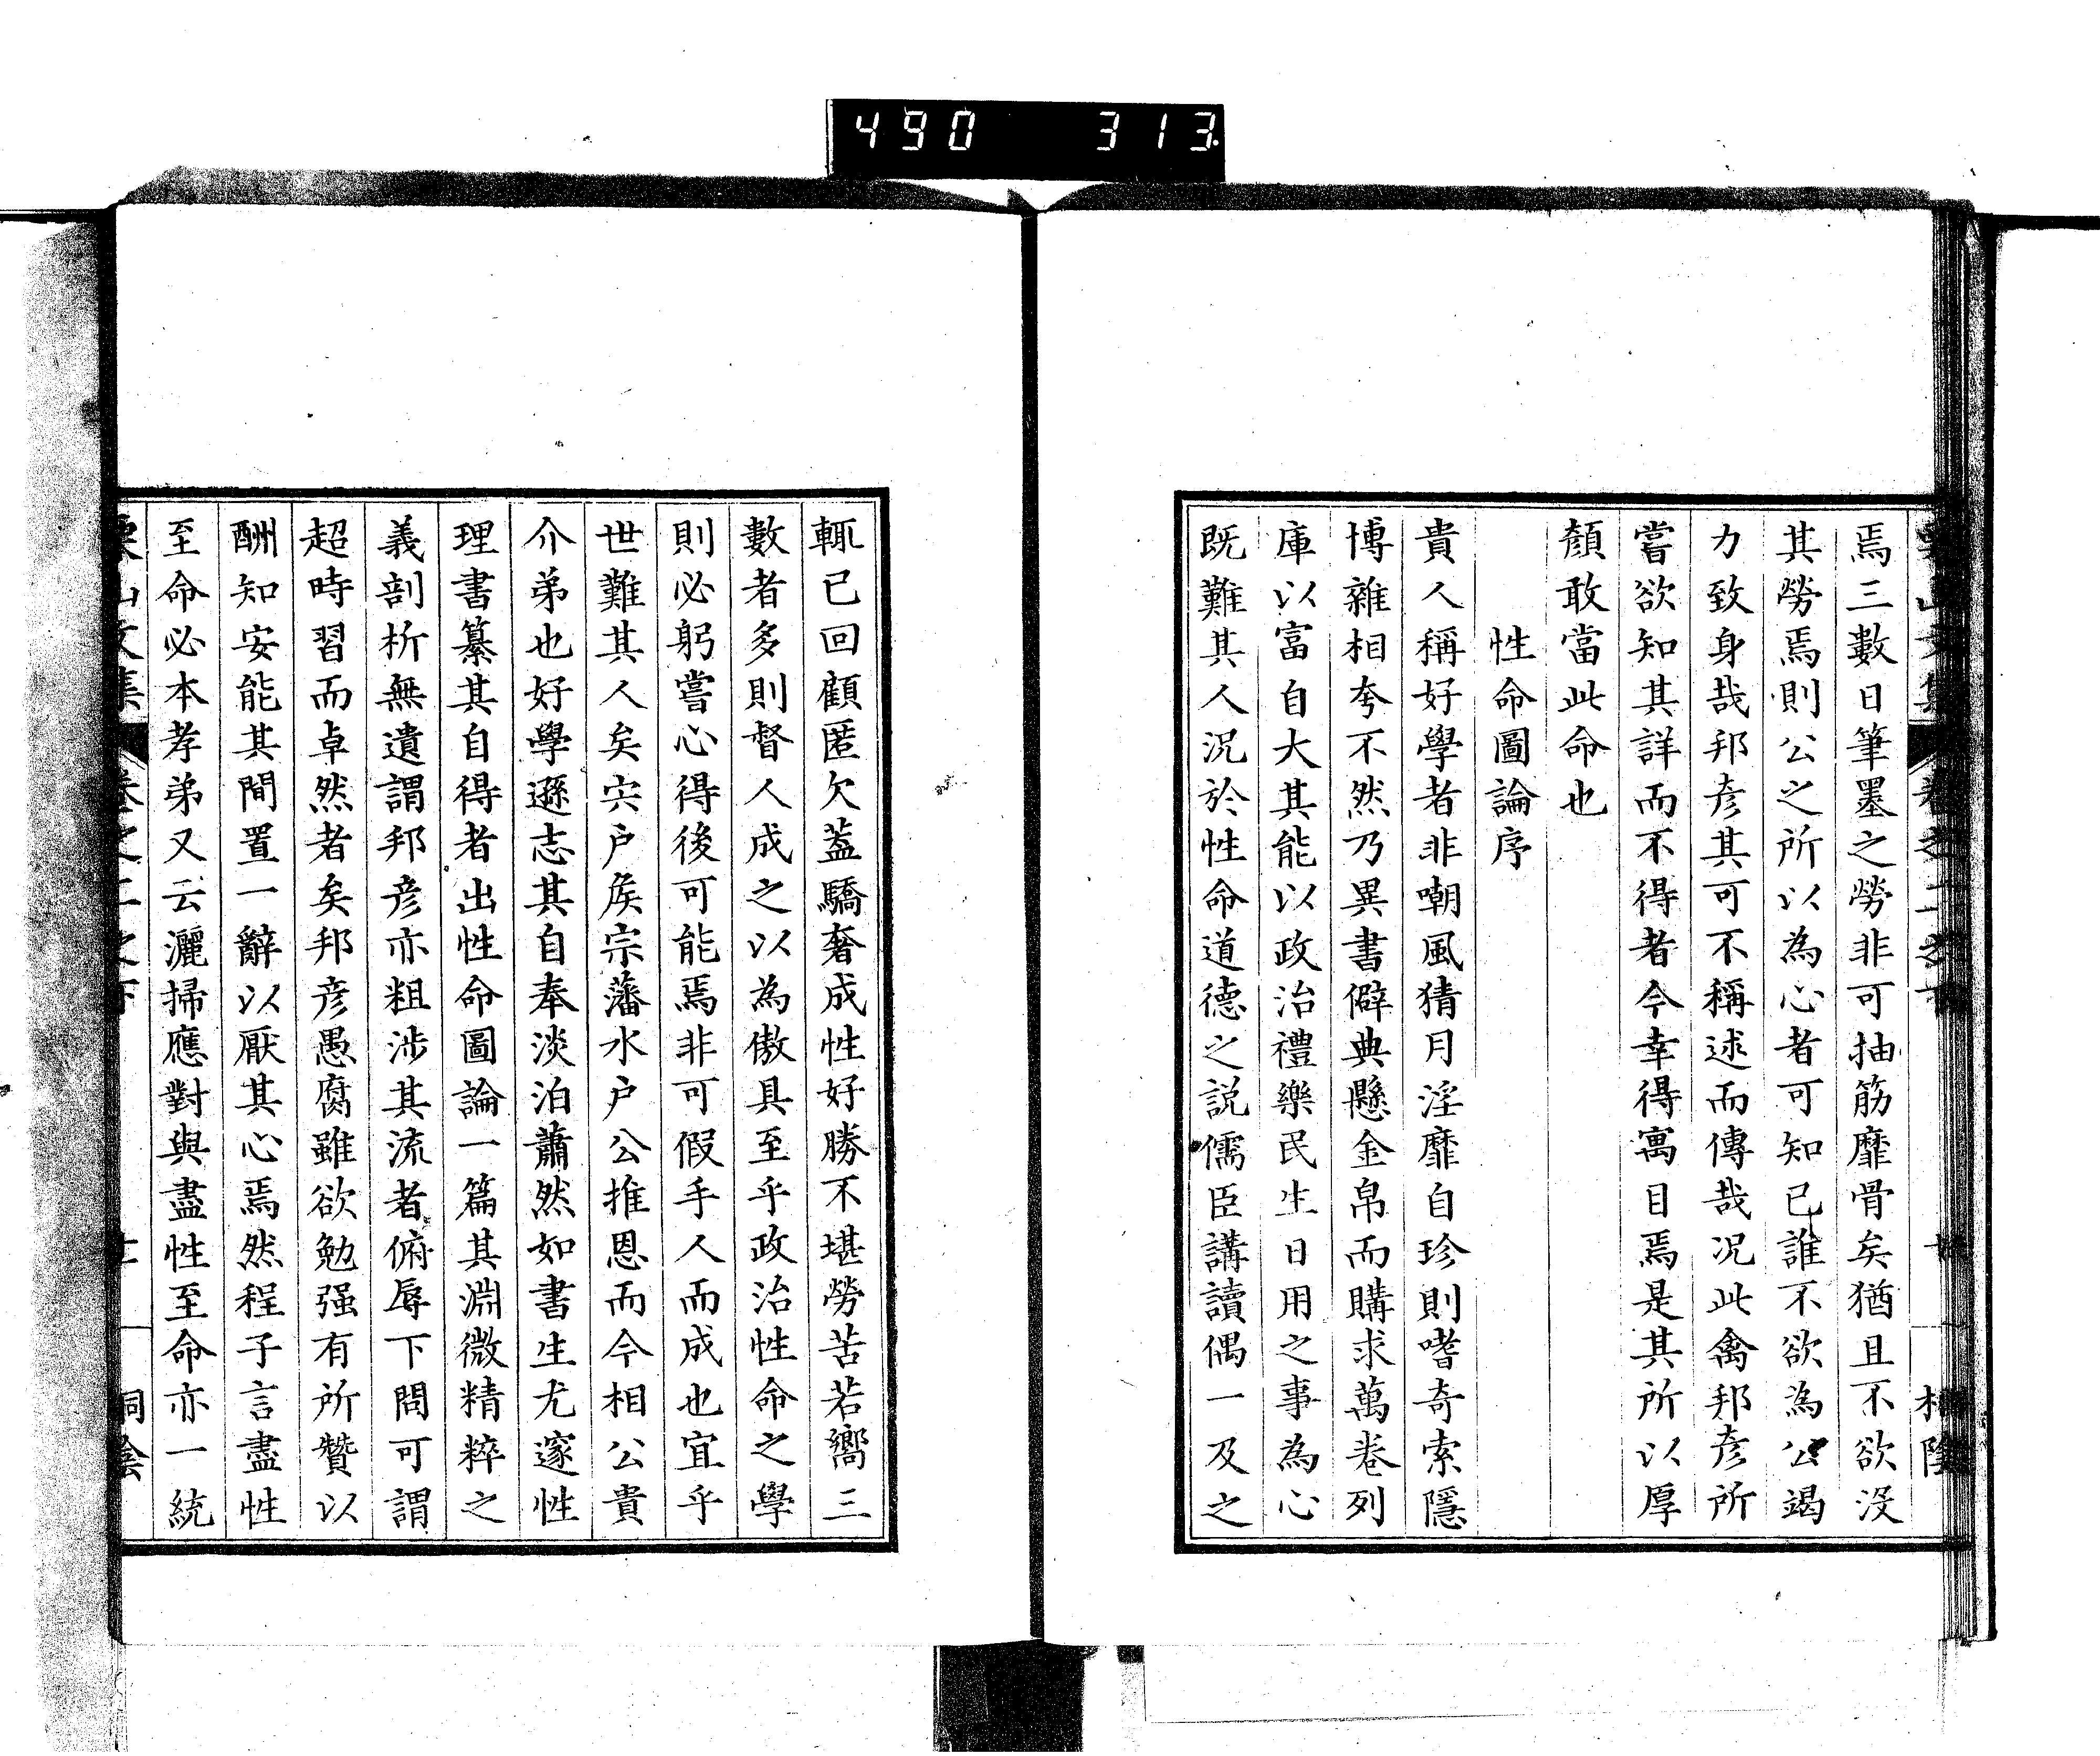 490 313
焉三數日筆墨之勞非可抽筋靡骨矣猶且不欲沒
其勞焉則公之所以為心者可知已誰不欲為公竭
力致身哉邦彦其可不稱述而傳哉況此禽邦彦所
嘗欲知其詳而不得者今幸得寓目焉是其所以厚
顏敢當此命也
性命圖論序
貴人稱好學者非嘲風猜月淫靡自珍則嗜奇索隱
博雜相夸不然乃異書僻典懸金帛而購求萬卷列
庫以富自大其能以政治禮樂民生日用之事為心
既難其人況於性命道德之説儒臣講讀偶一及之
輒已回顧匿欠蓋驕奢成性好勝不堪勞苦若嚮三
數者多則督人成之以為傲具至乎政治性命之學
則必躬嘗心得後可能焉非可假手人而成也宜乎
世難其人矣宍户矦宗藩水户公推恩而今相公貴
介弟也好學遜志其自奉淡泊蕭然如書生尤邃性
理書纂其自得者出性命圖論一篇其淵微精粹之
義剖析無遺謂邦彦亦粗涉其流者俯辱下問可謂
超時習而卓然者矣邦彦愚腐雖欲勉强有所贊以
酬知安能其間置一辭以厭其心焉然程子言盡性
至命必本孝弟又云灑掃應對與盡性至命亦一統
栗山文集 卷之二之下